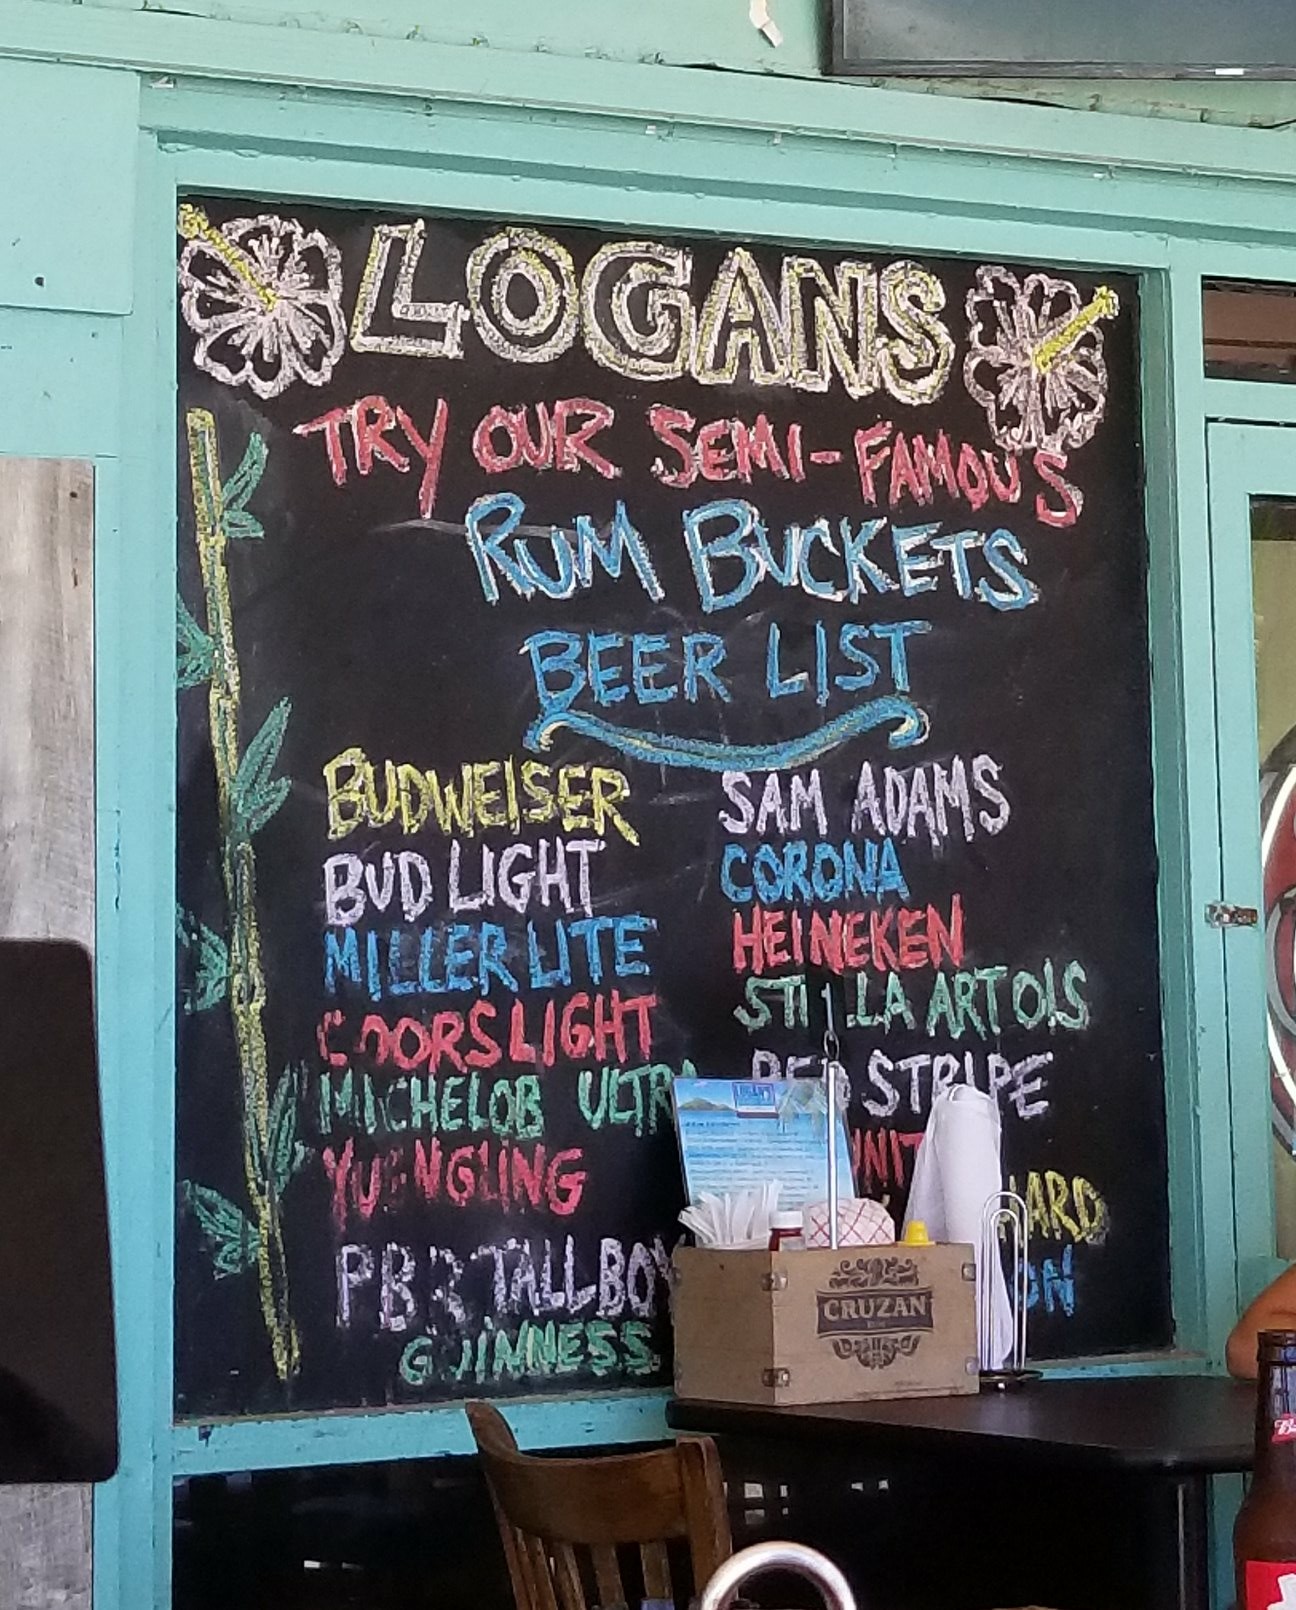 LOGANS
TRY OUR SEMI-FAMOUS
RUM BUCKETS
BEER LIST
BUDWEISER
BUD LIGHT
MILLER LITE
COORS LIGHT
MICHELOB ULTRA
YUENGLING
PBR TALLBOY
GUINNESS
SAM ADAMS
CORONA
HEINEKEN
STELLA ARTOIS
RED STRIPE
HARD
CRUZAN